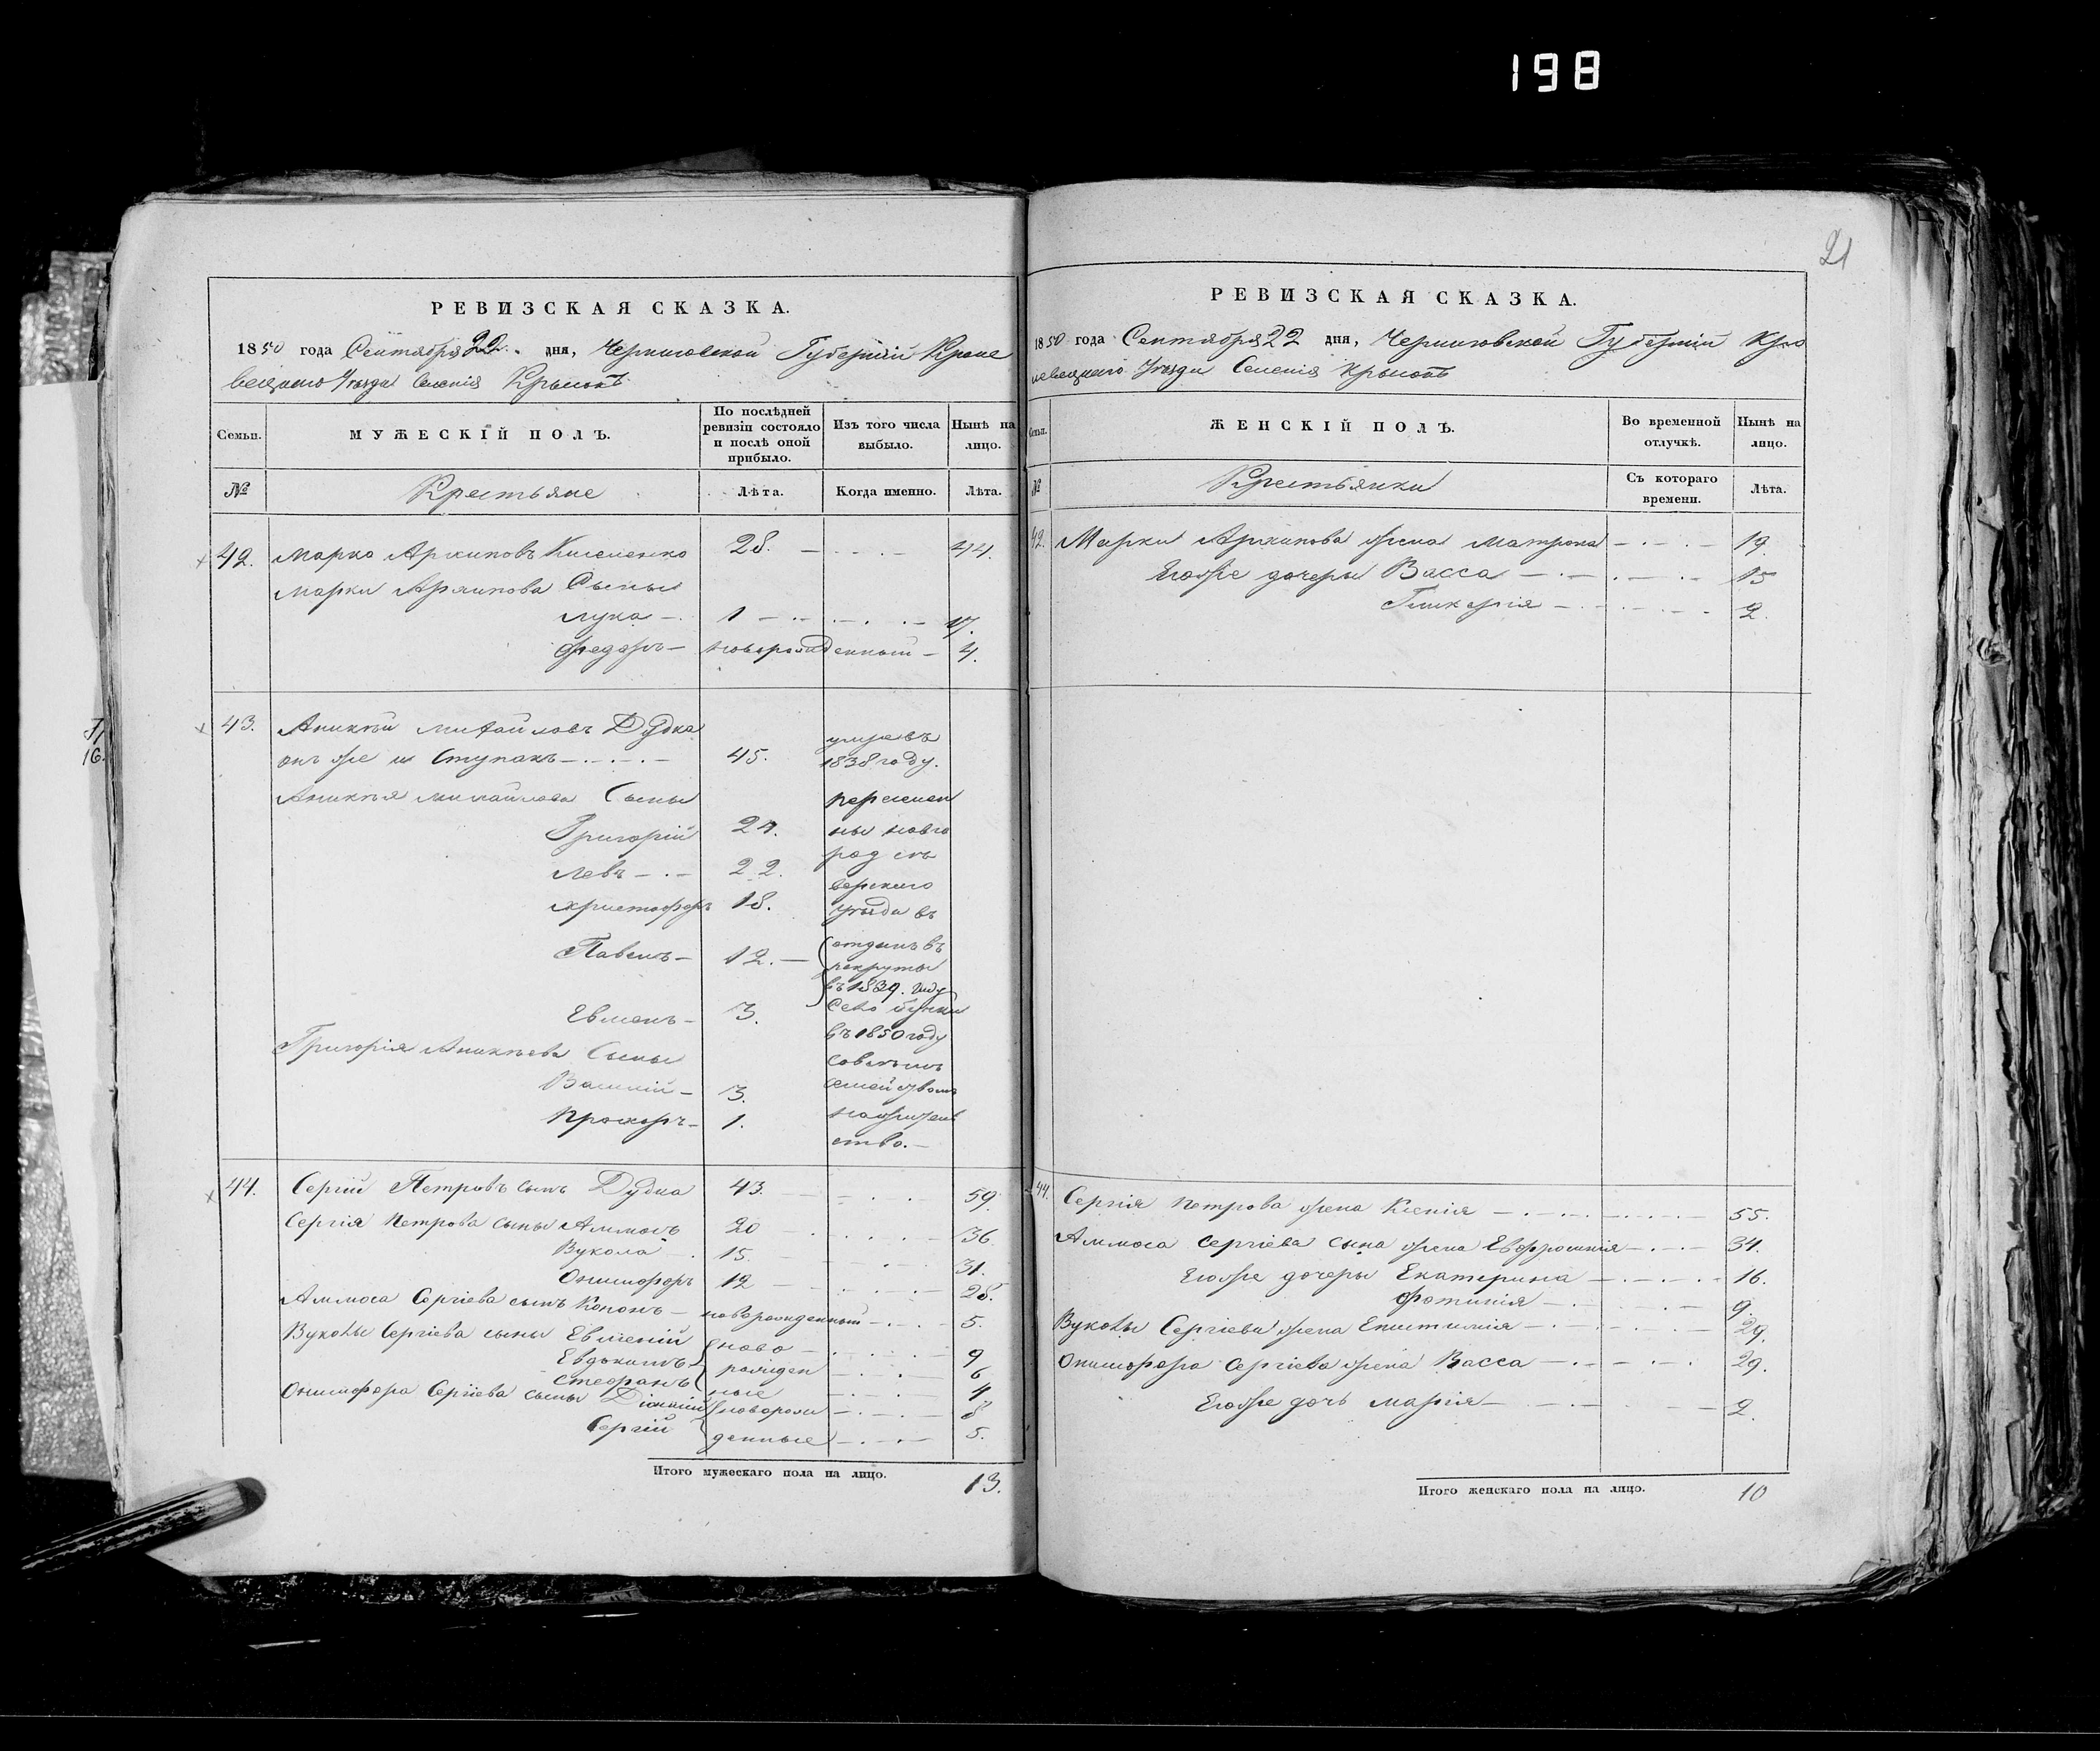 198
21
РЕВИЗСКАЯ СКАЗКА.
1850 года Сентября 22 дня, Черниговской Губерніи Кроле
вецкаго Уѣзда Селенія
Семьи.
МУЖЕСКІЙ ПОЛЪ.
По послѣдней ревизіи состояло и послѣ оной прибыло.
Изъ того числа выбыло.
Нынѣ на лицо.
№
Крестьяне
Лѣта.
Когда именно.
Лѣта.
42. Марко Архиповъ 28. 44.
Марки Архипова Сыны
Лука 1 17.
Федоръ новорожденный 4.
43. Аникѣй Михайловъ Дудка
онъ же и Ступакъ 45. умре въ 1838 году.
Аникѣя Михайлова Сыны
Григорій
Левъ 22.
Христофоръ 18.
Павелъ 12. отданъ въ рекруты въ 1839. году
Евменъ 3.
Григорія Аникѣева Сыны
Василій 3.
Прохоръ 1.
перечислен
ны новго
род сѣ
верскаго
уѣзда въ
село
въ 1850 году
совсѣмъ
семействомъ
на жительство.
44. Сергій Петровъ сынъ Дудка 43. 59.
Сергія Петрова сыны Аммосъ 20 36.
Вукола 15. 31.
Онисифоръ 12 28.
Аммоса Сергіева сынъ Кононъ новорожденный 5.
Вуколы Сергіева сыны Евменій ново 9
Евдокимъ рожден 6
Стефанъ ные 4
Онисифора Сергіева сыны новорож 8
Сергій денные 5.
Итого мужескаго пола на лицо. 13.
71
16.
РЕВИЗСКАЯ СКАЗКА.
1850 года Сентября 22 дня, Черниговской Губерніи Кро
левецкаго Уѣзда Селенія
Семьи.
ЖЕНСКІЙ ПОЛЪ.
Во временной отлучкѣ.
Нынѣ на лицо.
№
Крестьянки
Съ котораго времени.
Лѣта.
42. Марки Архипова жена Матрона 19.
Егоже дочеры Васса 15
Гликерія 2.
44. Сергія Петрова жена Ксенія 55.
Аммоса Сергіева сына жена Евфросинія 34.
Егоже дочеры Екатерина 16.
Фотинія 9.
Вуколы Сергіева жена Епистимія 29.
Онисифора Сергіева жена Васса 29.
Егоже дочь Марія 2.
Итого женскаго пола на лицо. 10